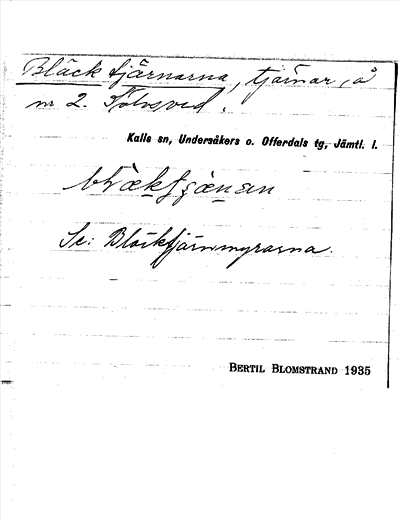 Bläcktjärnarna, tjärnar, å
nr 2. Kolvsved.
Kalls sn, Undersåkers o. Offerdals tg, Jämtl. l.
Se: Bläcktjärnmyrarna.
BERTIL BLOMSTRAND 1935